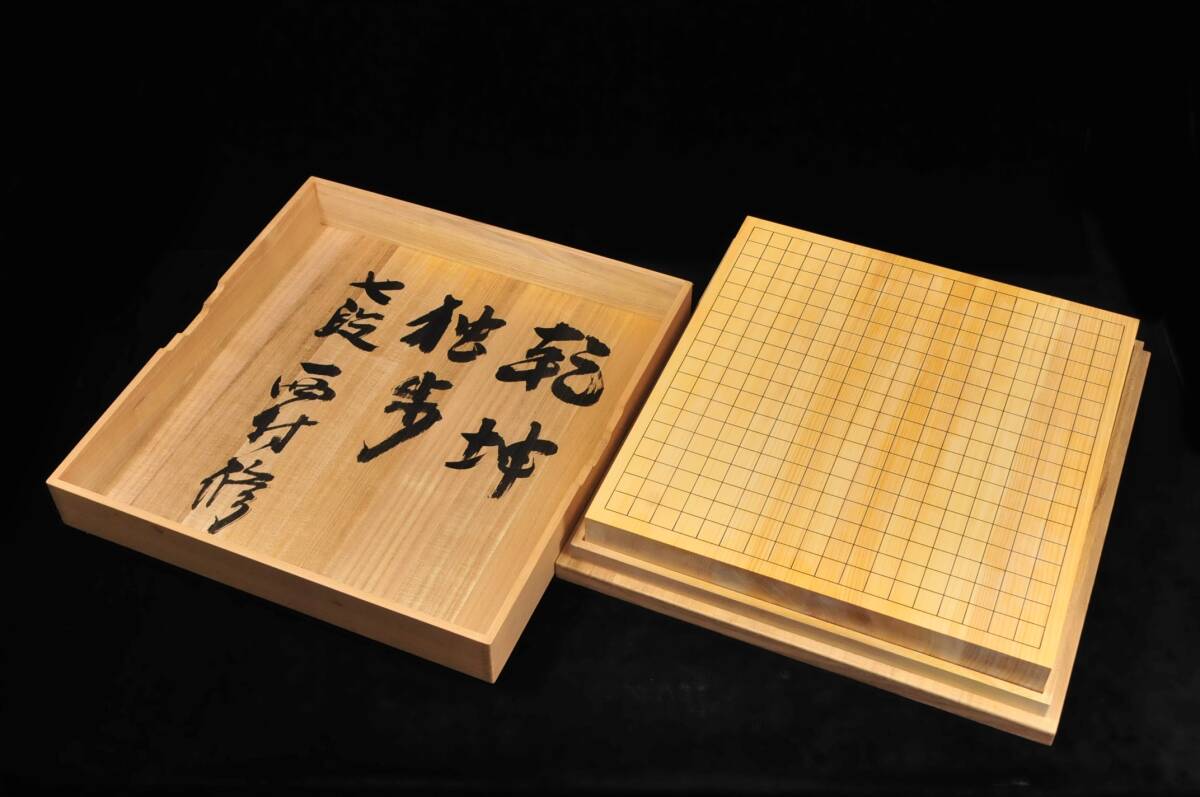 乾坤
独歩
七段 西村修